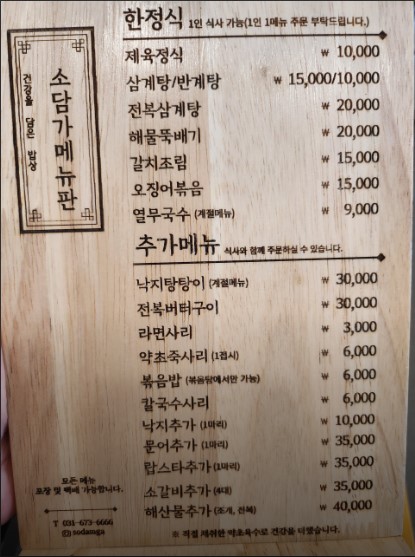 소담가메뉴판
건강을 담은 밥상
한정식 1인 식사 가능(1인 1메뉴 주문 부탁드립니다.)
제육정식 ₩ 10,000
삼계탕/반계탕 ₩ 15,000/10,000
전복삼계탕 ₩ 20,000
해물뚝배기 ₩ 20,000
갈치조림 ₩ 15,000
오징어볶음 ₩ 15,000
열무국수 (계절메뉴) ₩ 9,000
추가메뉴 식사와 함께 주문하실 수 있습니다.
낙지탕탕이 (계절메뉴) ₩ 30,000
전복버터구이 ₩ 30,000
라면사리 ₩ 3,000
약초죽사리 (1접시) ₩ 6,000
볶음밥 (볶음탕에서만 가능) ₩ 6,000
칼국수사리 ₩ 6,000
낙지추가 (1마리) ₩ 10,000
문어추가 (1마리) ₩ 35,000
랍스타추가 (1마리) ₩ 35,000
소갈비추가 (4대) ₩ 35,000
해산물추가 (조개, 전복) ₩ 40,000
※ 직접 채취한 약초육수로 건강을 더했습니다.
모든 메뉴
포장 및 택배 가능합니다.
T 031-673-6666
sodamga